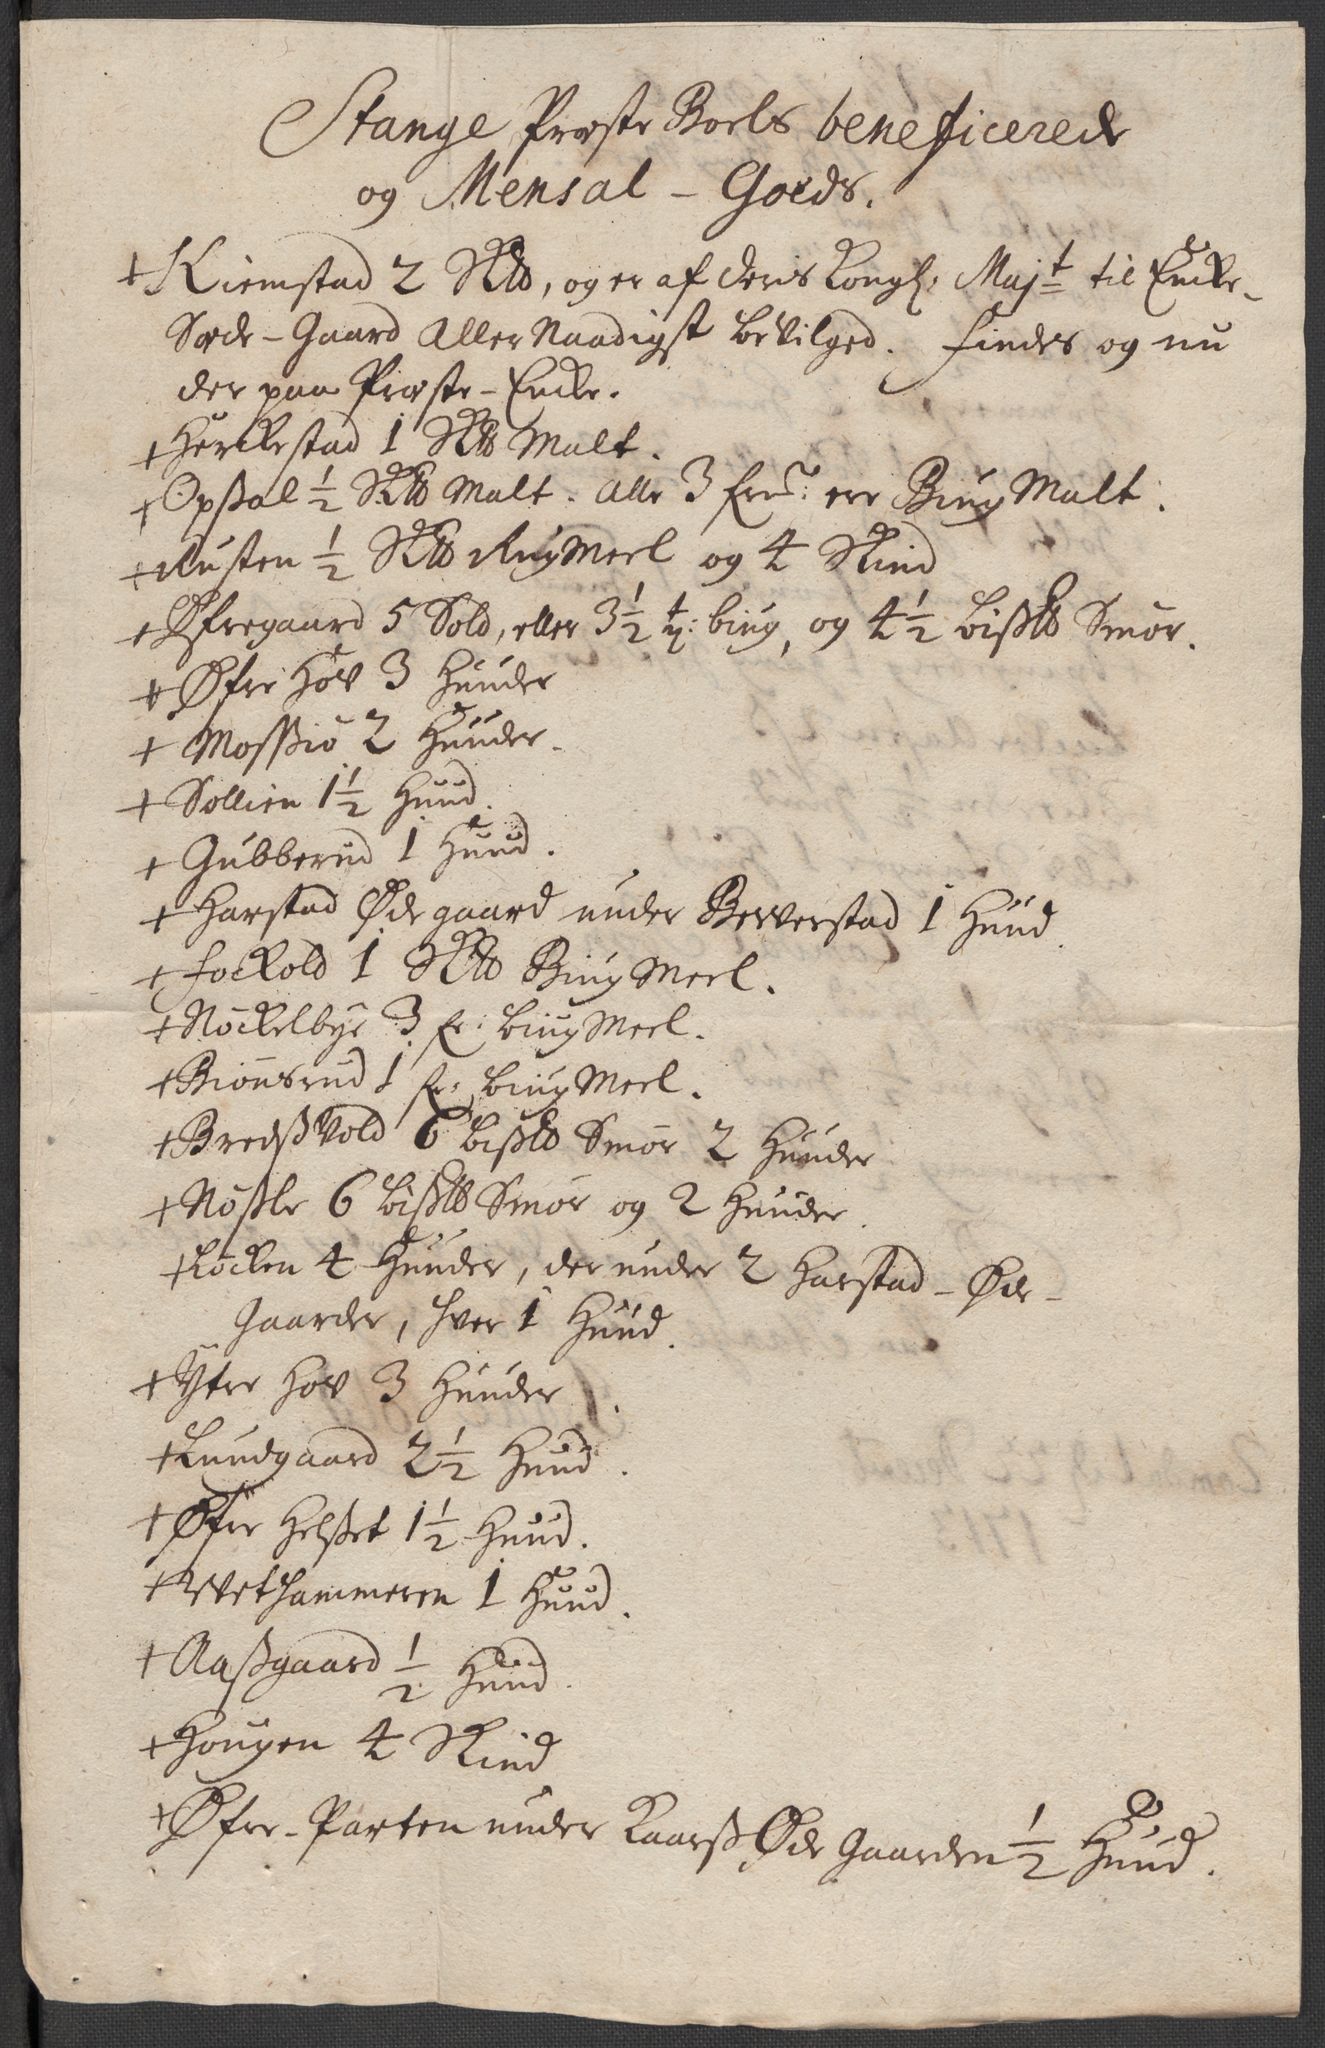 Stange Præste Boels beneficerede
og Mensal - Goeds.
+ Kiemstad 2 Sk℔, og er af deris Kongl: Majt til Encke-
Sæde - Gaard Aller Naadigst bevilged. Findes og nu
der paa Præste - Encke.
+ Herckestad 1 Sk℔ Malt.
+ Opßal ½ Sk℔ Malt. Alle 3 ere Biug Malt.
+ Rusten ½ Sk℔ Rug Meel og 4 Skind
+ Øfregaard 5 Sold, eller 3½ t: biug, og 4½ biß℔ Smör.
+ Øfre Hov 3 Huuder
+ Moßiö 2 Huuder.
+ Sollien 1½ Huud.
+ Gubberud 1 Huud.
+ Harstad Øde gaard under Berverstad 1 Huud.
+ Fockold 1 Sk℔ Biug Meel.
+ Nöckelbye 3 fr: biug Meel.
+ Biönsrud 1 fr: biug Meel.
+ Bredßvold 6 biß℔ Smör 2 Huuder
+ Nößle 6 biß℔ Smör og 2 Huuder.
+ Löcken 4 Huuder, der under 2 Harstad - Øde-
Gaarder, hver 1 Huud.
+ Ytre Hov 3 Huuder.
+ Lundgaard 2½ Huud.
+ Øfre Helßet 1½ Huud.
+ Wethammeren 1 Huud.
+ Aaßgaard ½ Huud.
+ Hougen 4 Skind
+ Øfre - Parten under Kaarß Øde Gaarden ½ Huud.